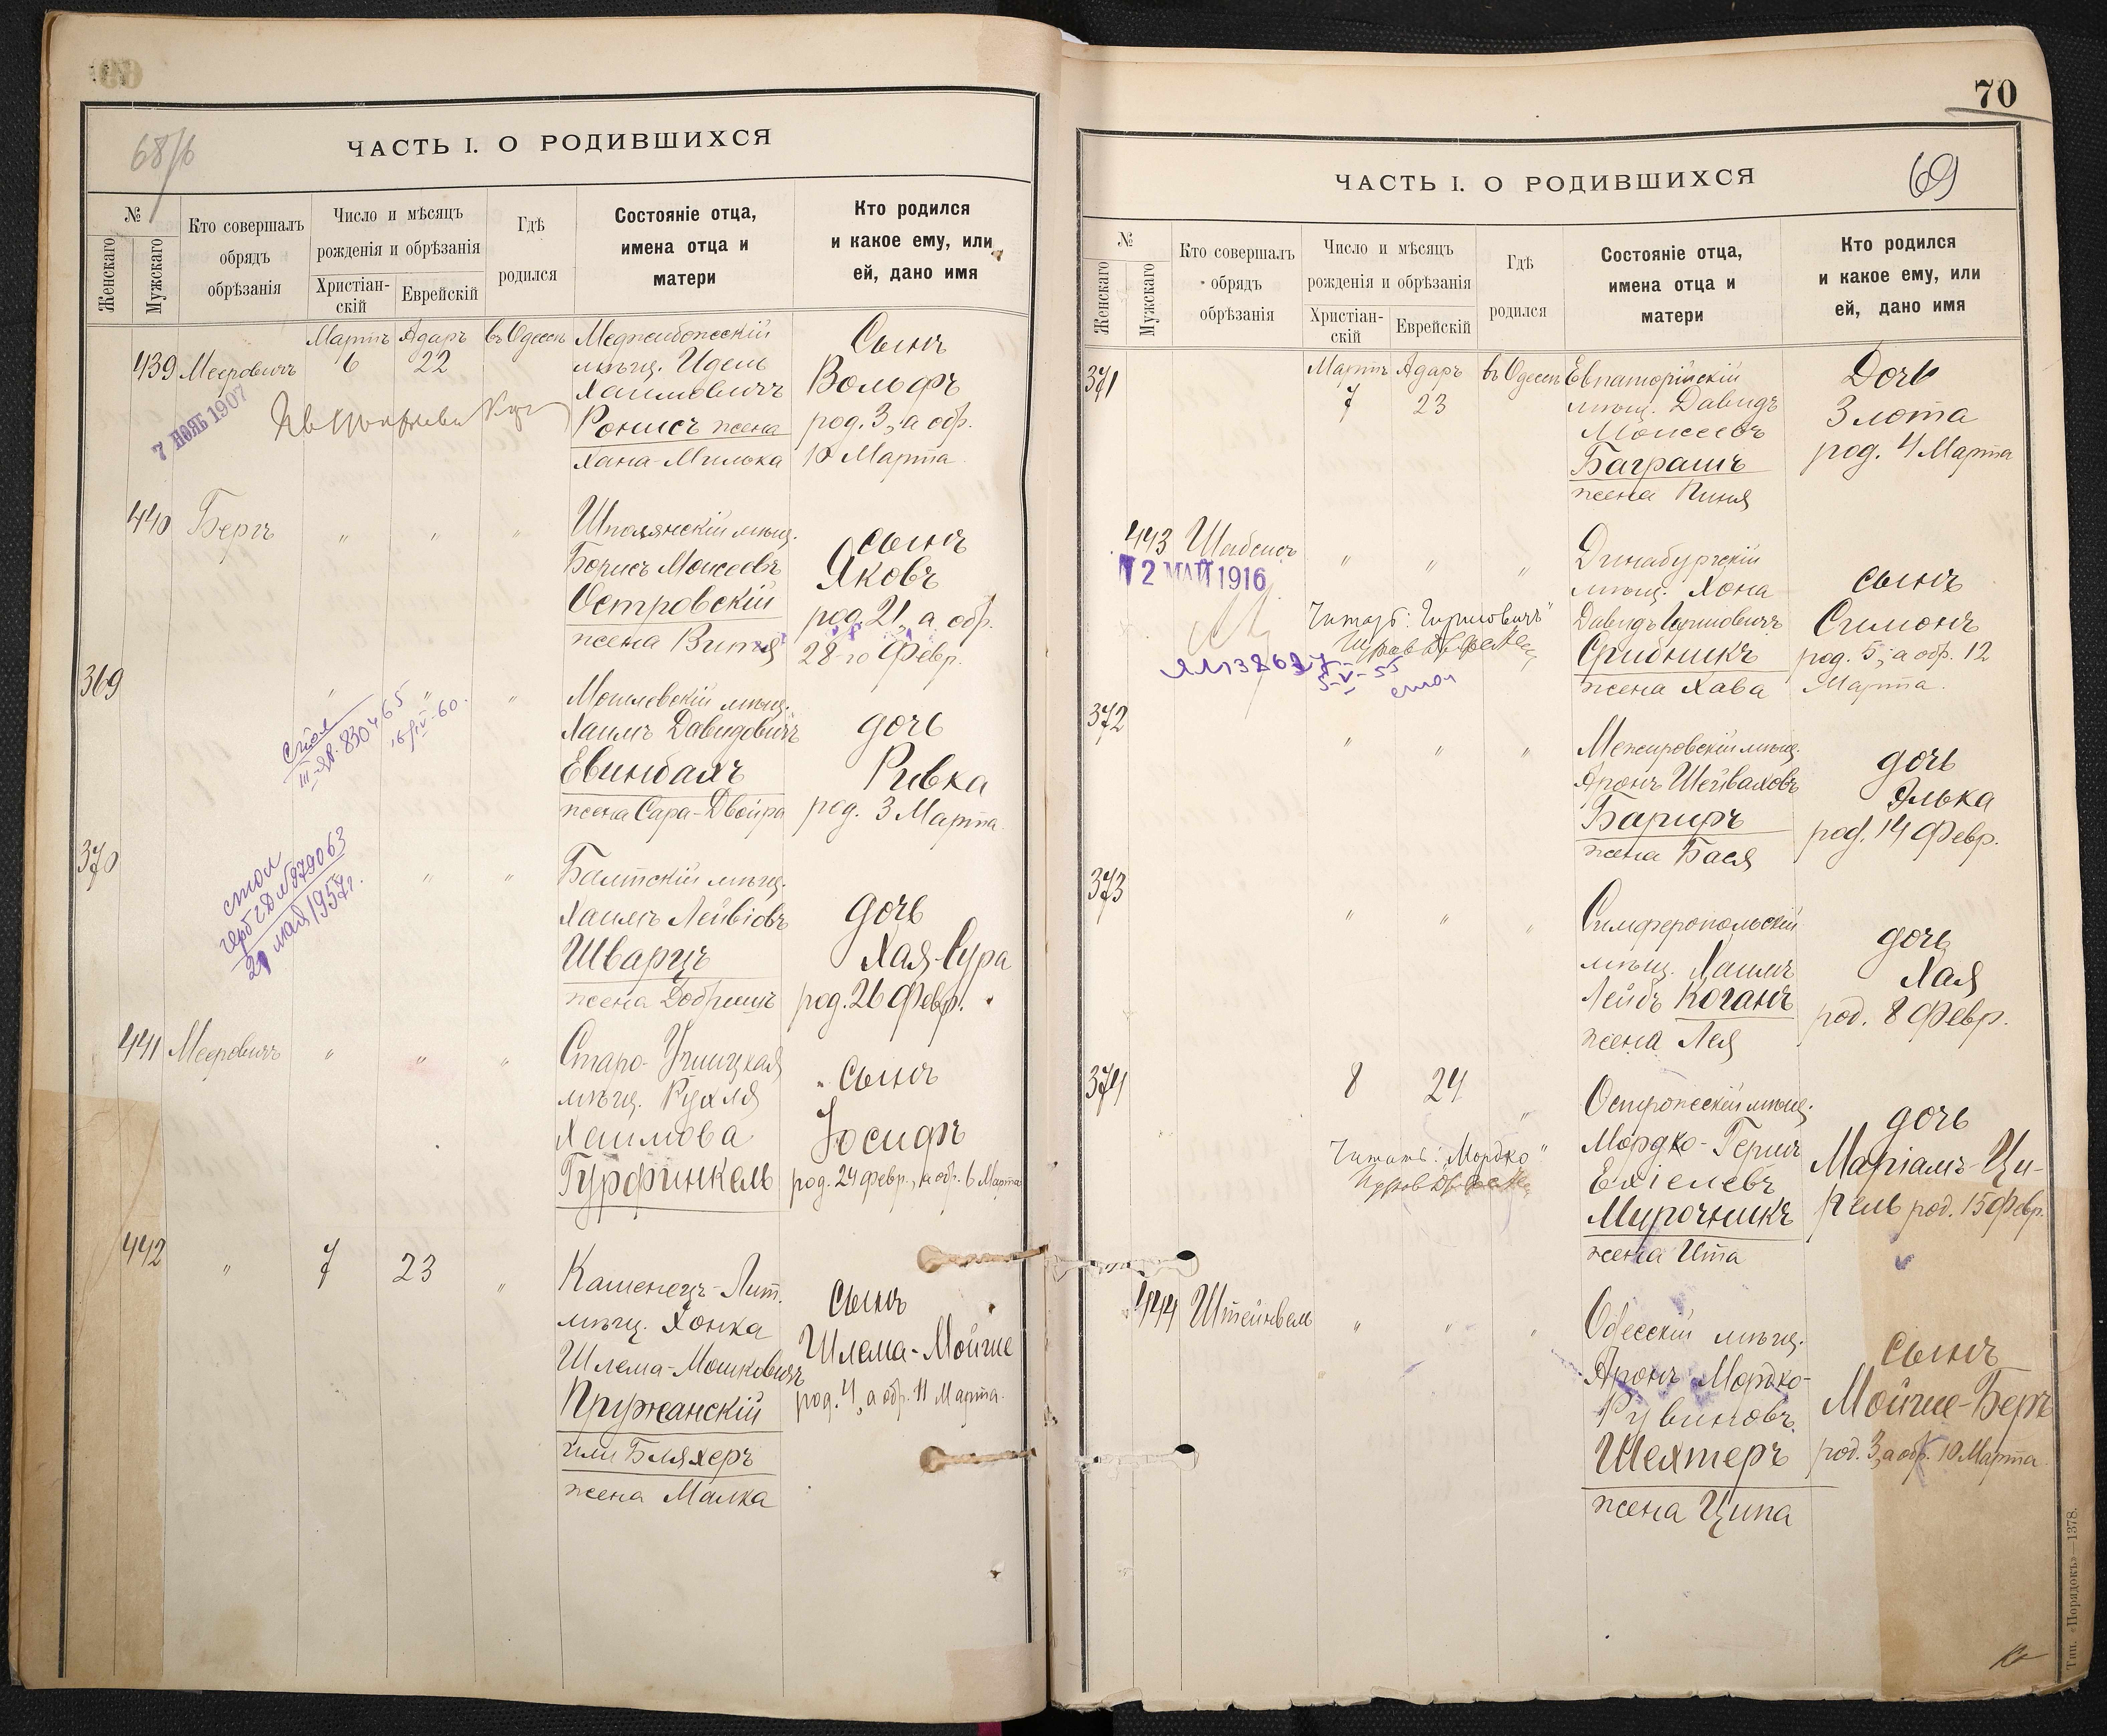 68/б
ЧАСТЬ I. О РОДИВШИХСЯ
№
Женскаго
Мужскаго
Кто совершалъ
обрядъ
обрѣзанія
Число и мѣсяцъ
рожденія и обрѣзанія
Христіан-
скій
Еврейскій
Гдѣ
родился
Состояніе отца,
имена отца и
матери
Кто родился
и какое ему, или
ей, дано имя
439 Мееровичъ
7 НОЯБ 1907
Мартъ
6
Адаръ
22
въ Одессѣ
Меджибожскій
мѣщ. Идель
Хаимовичъ
Ронисъ жена
Хана-Милька
Сынъ
Вольфъ
род. 3, а обр.
10 Марта
440 Бергъ
" " "
Шполянскій мѣщ.
Борисъ Моисеевъ
Островскій
жена Витя
сынъ
Яковъ
род. 21, а обр.
28-го Февр.
369
" " "
стол
III-ЯР. 830465
16/IV-60.
Могилевскій мѣщ.
Хаимъ Давидовичъ
Евинбахъ
жена Сара-Двойра
дочь
Ривка
род. 3 Марта
370
стол
№ 879063
21 мая 1957г.
" "
Балтскій мѣщ.
Хаимъ Лейвіовъ
Шварцъ
жена Добрышъ
дочь
Хая-Сура
род. 26 Февр.
441 Мееровичъ
" " "
Старо-Ушицкая
мѣщ. Рухля
Хаимова
Гурфинкель
сынъ
Іосифъ
род. 24 февр., а обр. 6 Марта
442
" 7 23 "
Каменецъ-Лит.
мѣщ. Хонка
Шлема-Мошковичъ
Пружанскій
или Бляхеръ
жена Малка
сынъ
Шлема-Мойше
род. 4, а обр. 11 Марта
70
69
ЧАСТЬ I. О РОДИВШИХСЯ
№
Женскаго
Мужскаго
Кто совершалъ
обрядъ
обрѣзанія
Число и мѣсяцъ
рожденія и обрѣзанія
Христіан-
скій
Еврейскій
Гдѣ
родился
Состояніе отца,
имена отца и
матери
Кто родился
и какое ему, или
ей, дано имя
371
Мартъ
7
Адаръ
23
въ Одессѣ
Евпаторійскій
мѣщ. Давидъ
Моисеевъ
Баграшъ
жена Пиня
Дочь
Злота
род. 4 Марта
443
12 МАЙ 1916
" " "
Читать: "Гиршовичъ"
5-V-55
стол
Динабургскій
мѣщ. Хона
Давидъ Гиршовичъ
Срибникъ
жена Хава
сынъ
Симонъ
род. 5, а обр. 12
Марта.
372
" " "
Межировскій мѣщ.
Аронъ Шейваховъ
Бариръ
жена Бася
дочь
Элька
род. 14 Февр.
373
" " "
Симферопольскій
мѣщ. Хаимъ
Лейбъ Коганъ
жена Лея
дочь
Хая
род. 8 Февр.
374
8 24 "
Читать: "Мордко"
Остропескій мѣщ.
Мордко-Герш
Ехіелевъ
Мирочникъ
жена Ита
дочь
Маріамъ-Ци-
рель род. 15 Февр.
444 Штейнвель
" " "
Одесскій мѣщ.
Аронъ Мордко-
Рувиновъ
Шехтеръ
жена Ципа
сынъ
Мойше-Беръ
род. 3, а обр. 10 Марта
Тип. «Порядокъ»—1378.